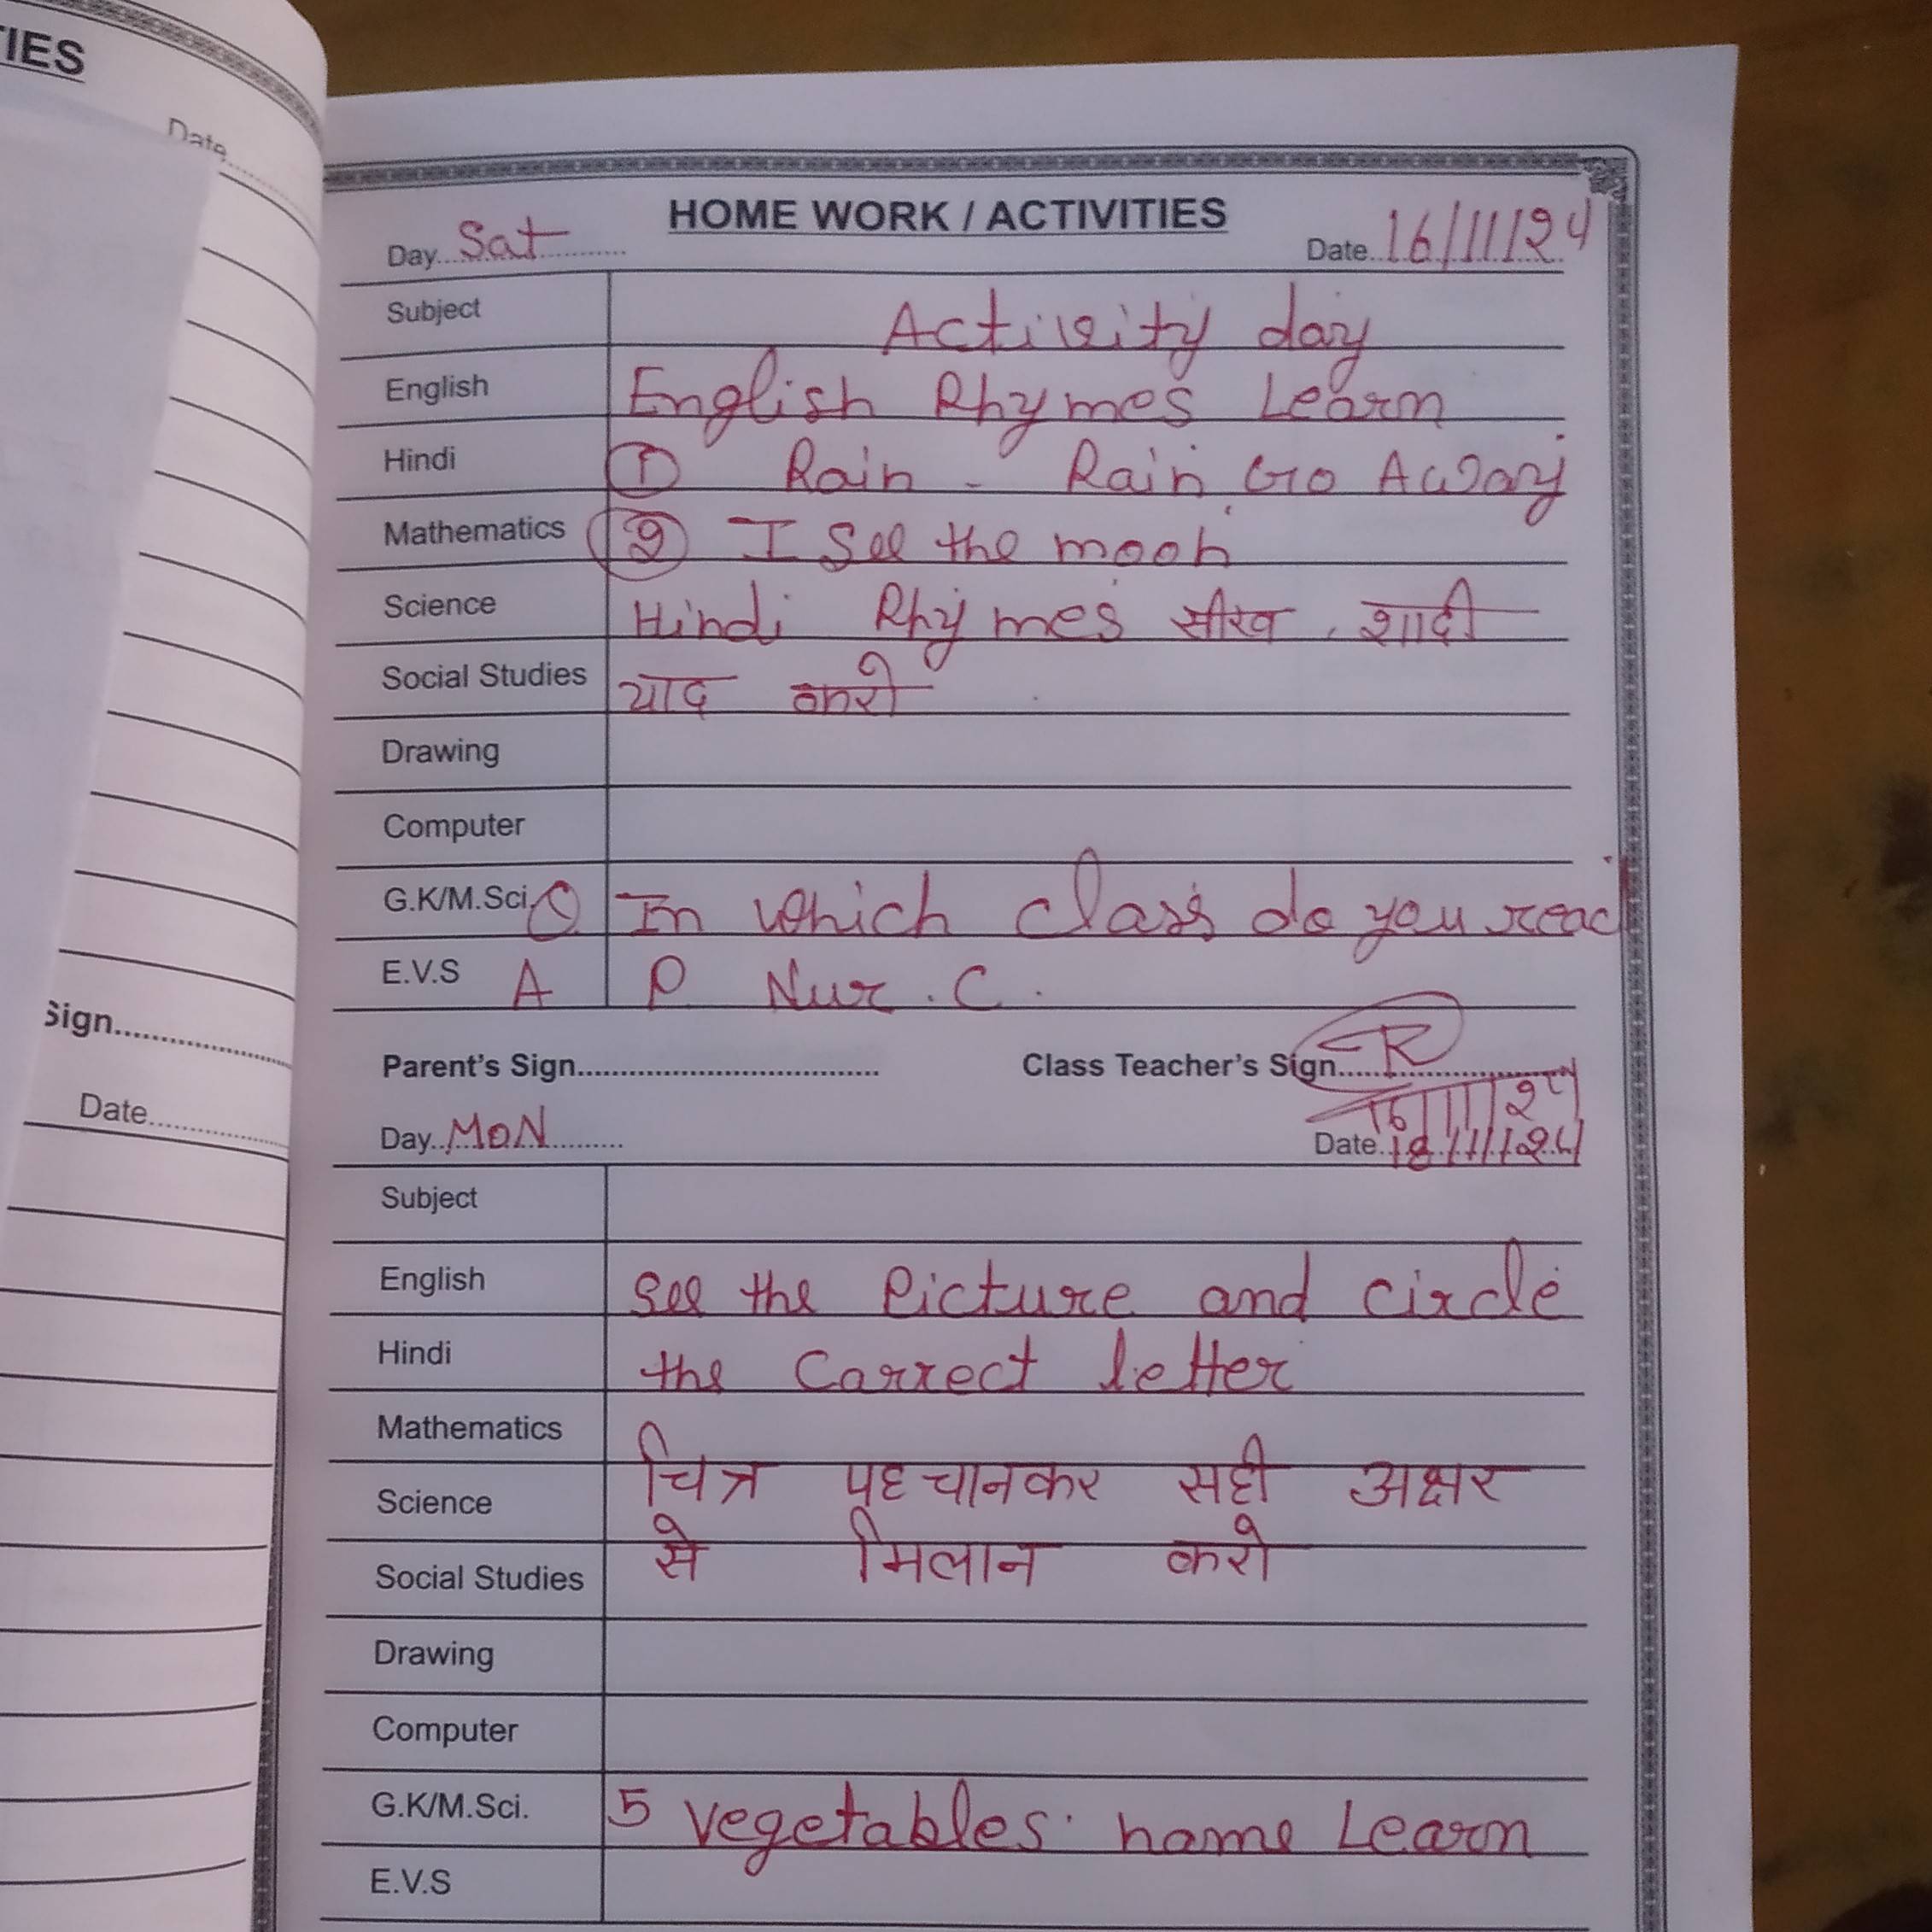 IES
Date
Sign
Date
HOME WORK / ACTIVITIES
Day Sat Date 16/11/24
Subject Activity day
English English Rhymes Learn
Hindi ① Rain - Rain Go Away
Mathematics ② I See the moon
Science Hindi Rhymes सीख शादी
Social Studies याद करो
Drawing
Computer
G.K/M.Sci. Q In which class do you read
E.V.S A P Nur. C.
Parent's Sign Class Teacher's Sign
16/11/24
Day MON Date 18/11/24
Subject
English See the Picture and circle
Hindi the Correct letter
Mathematics
Science चित्र पहचानकर सही अक्षर
Social Studies से मिलान करो
Drawing
Computer
G.K/M.Sci. 5 vegetables name Learn
E.V.S